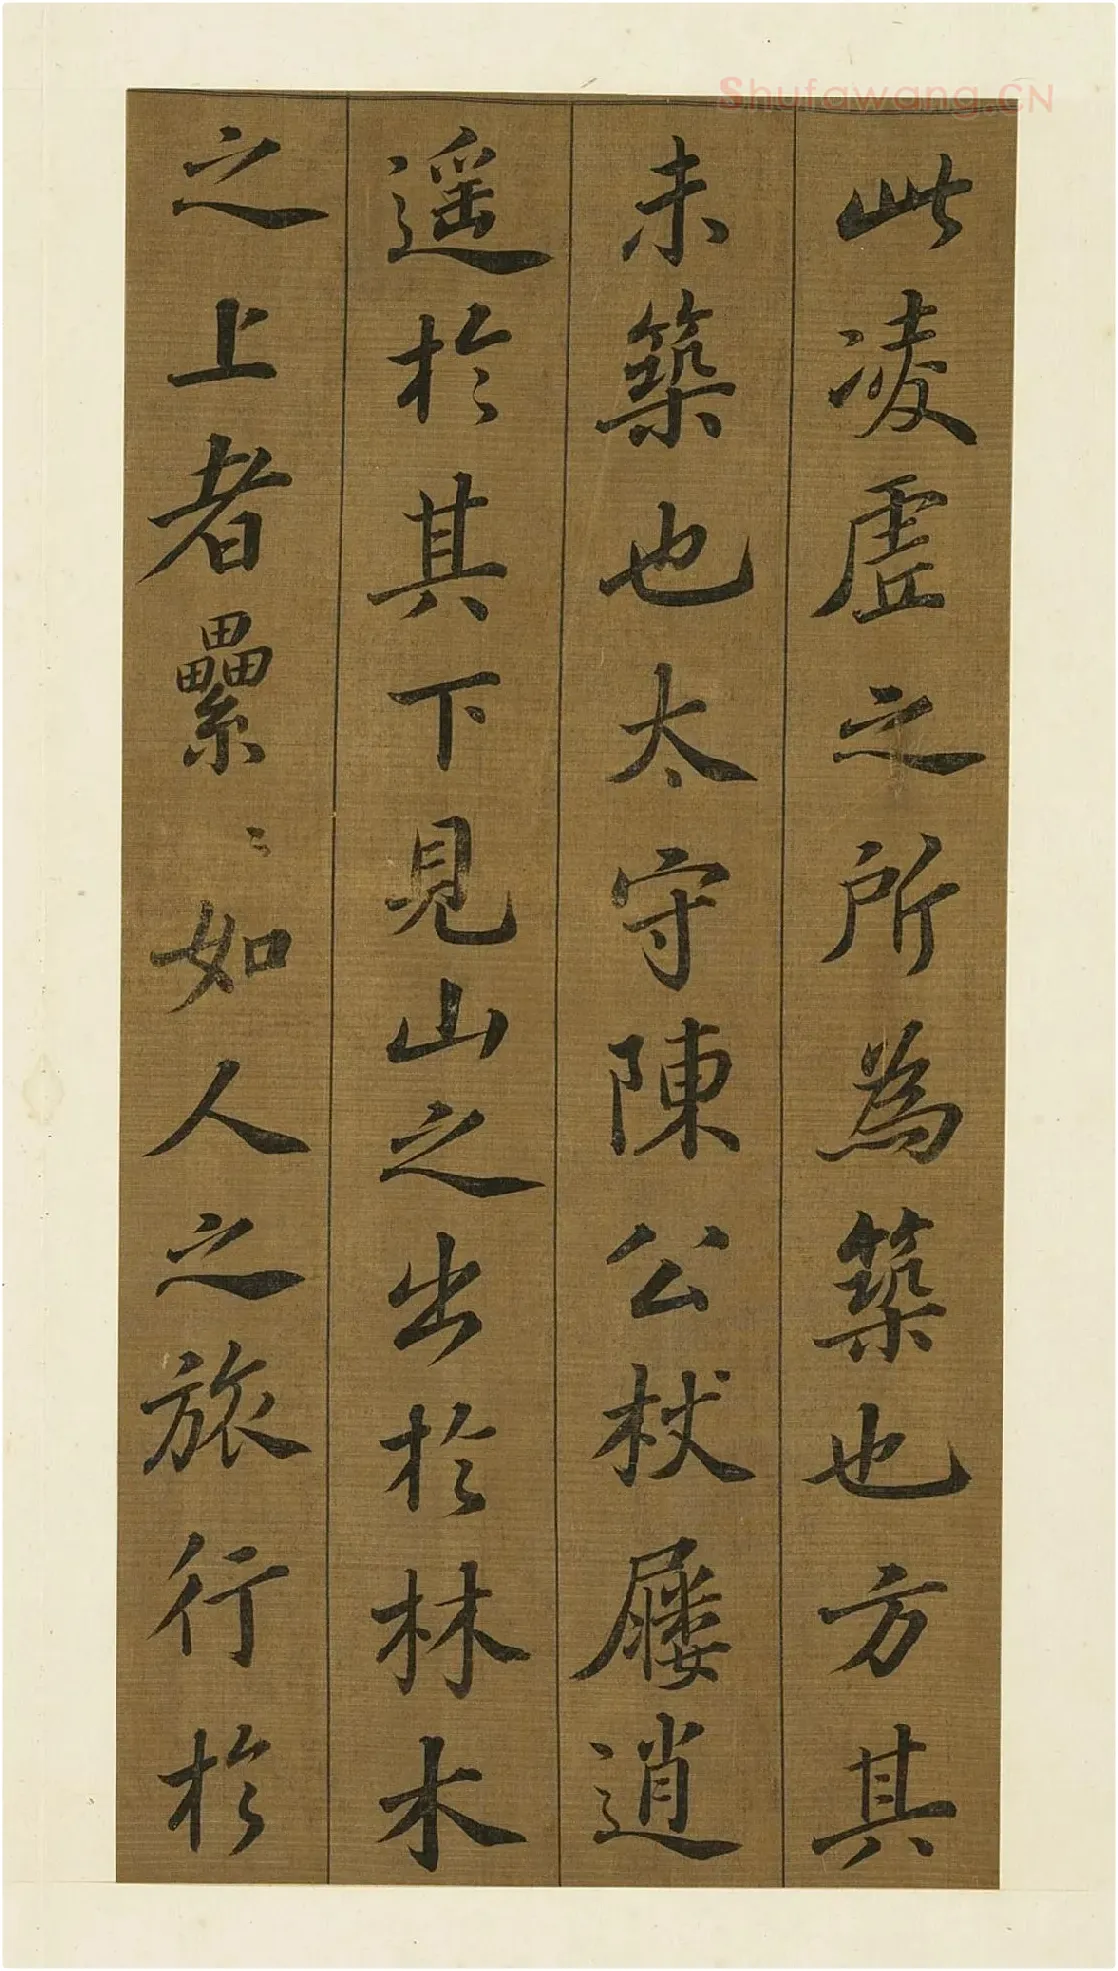 Shufawang.CN
此凌虛之所為築也方其
未築也太守陳公杖屨逍
遥於其下見山之出於林木
之上者纍〻如人之旅行於